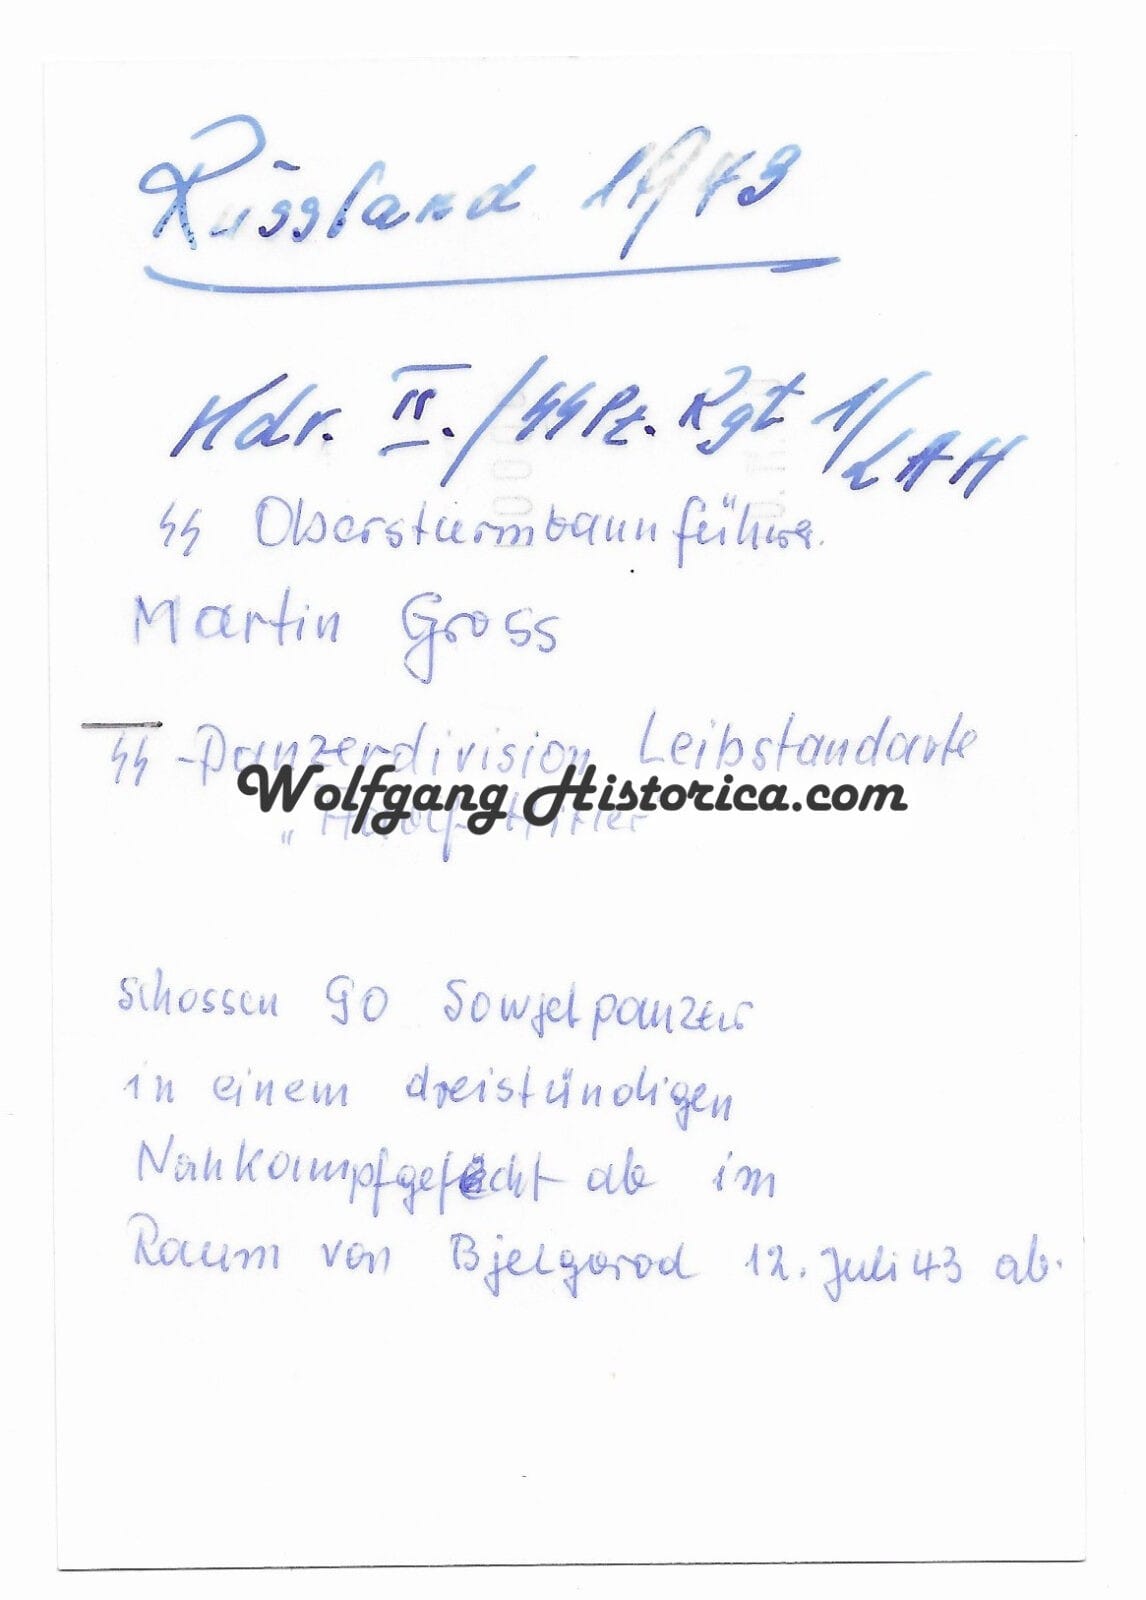 Russland 1943
Kdr. II./SS Pz. Rgt 1/LAH
SS Obersturmbannführer.
Martin Gross
SS-Panzerdivision Leibstandarte
Wolfgang Historica.com
"Adolf Hitler"
schossen 90 Sowjetpanzer
in einem dreistündigen
Nahkampfgefecht ab im
Raum von Bjelgorod 12. Juli 43 ab.